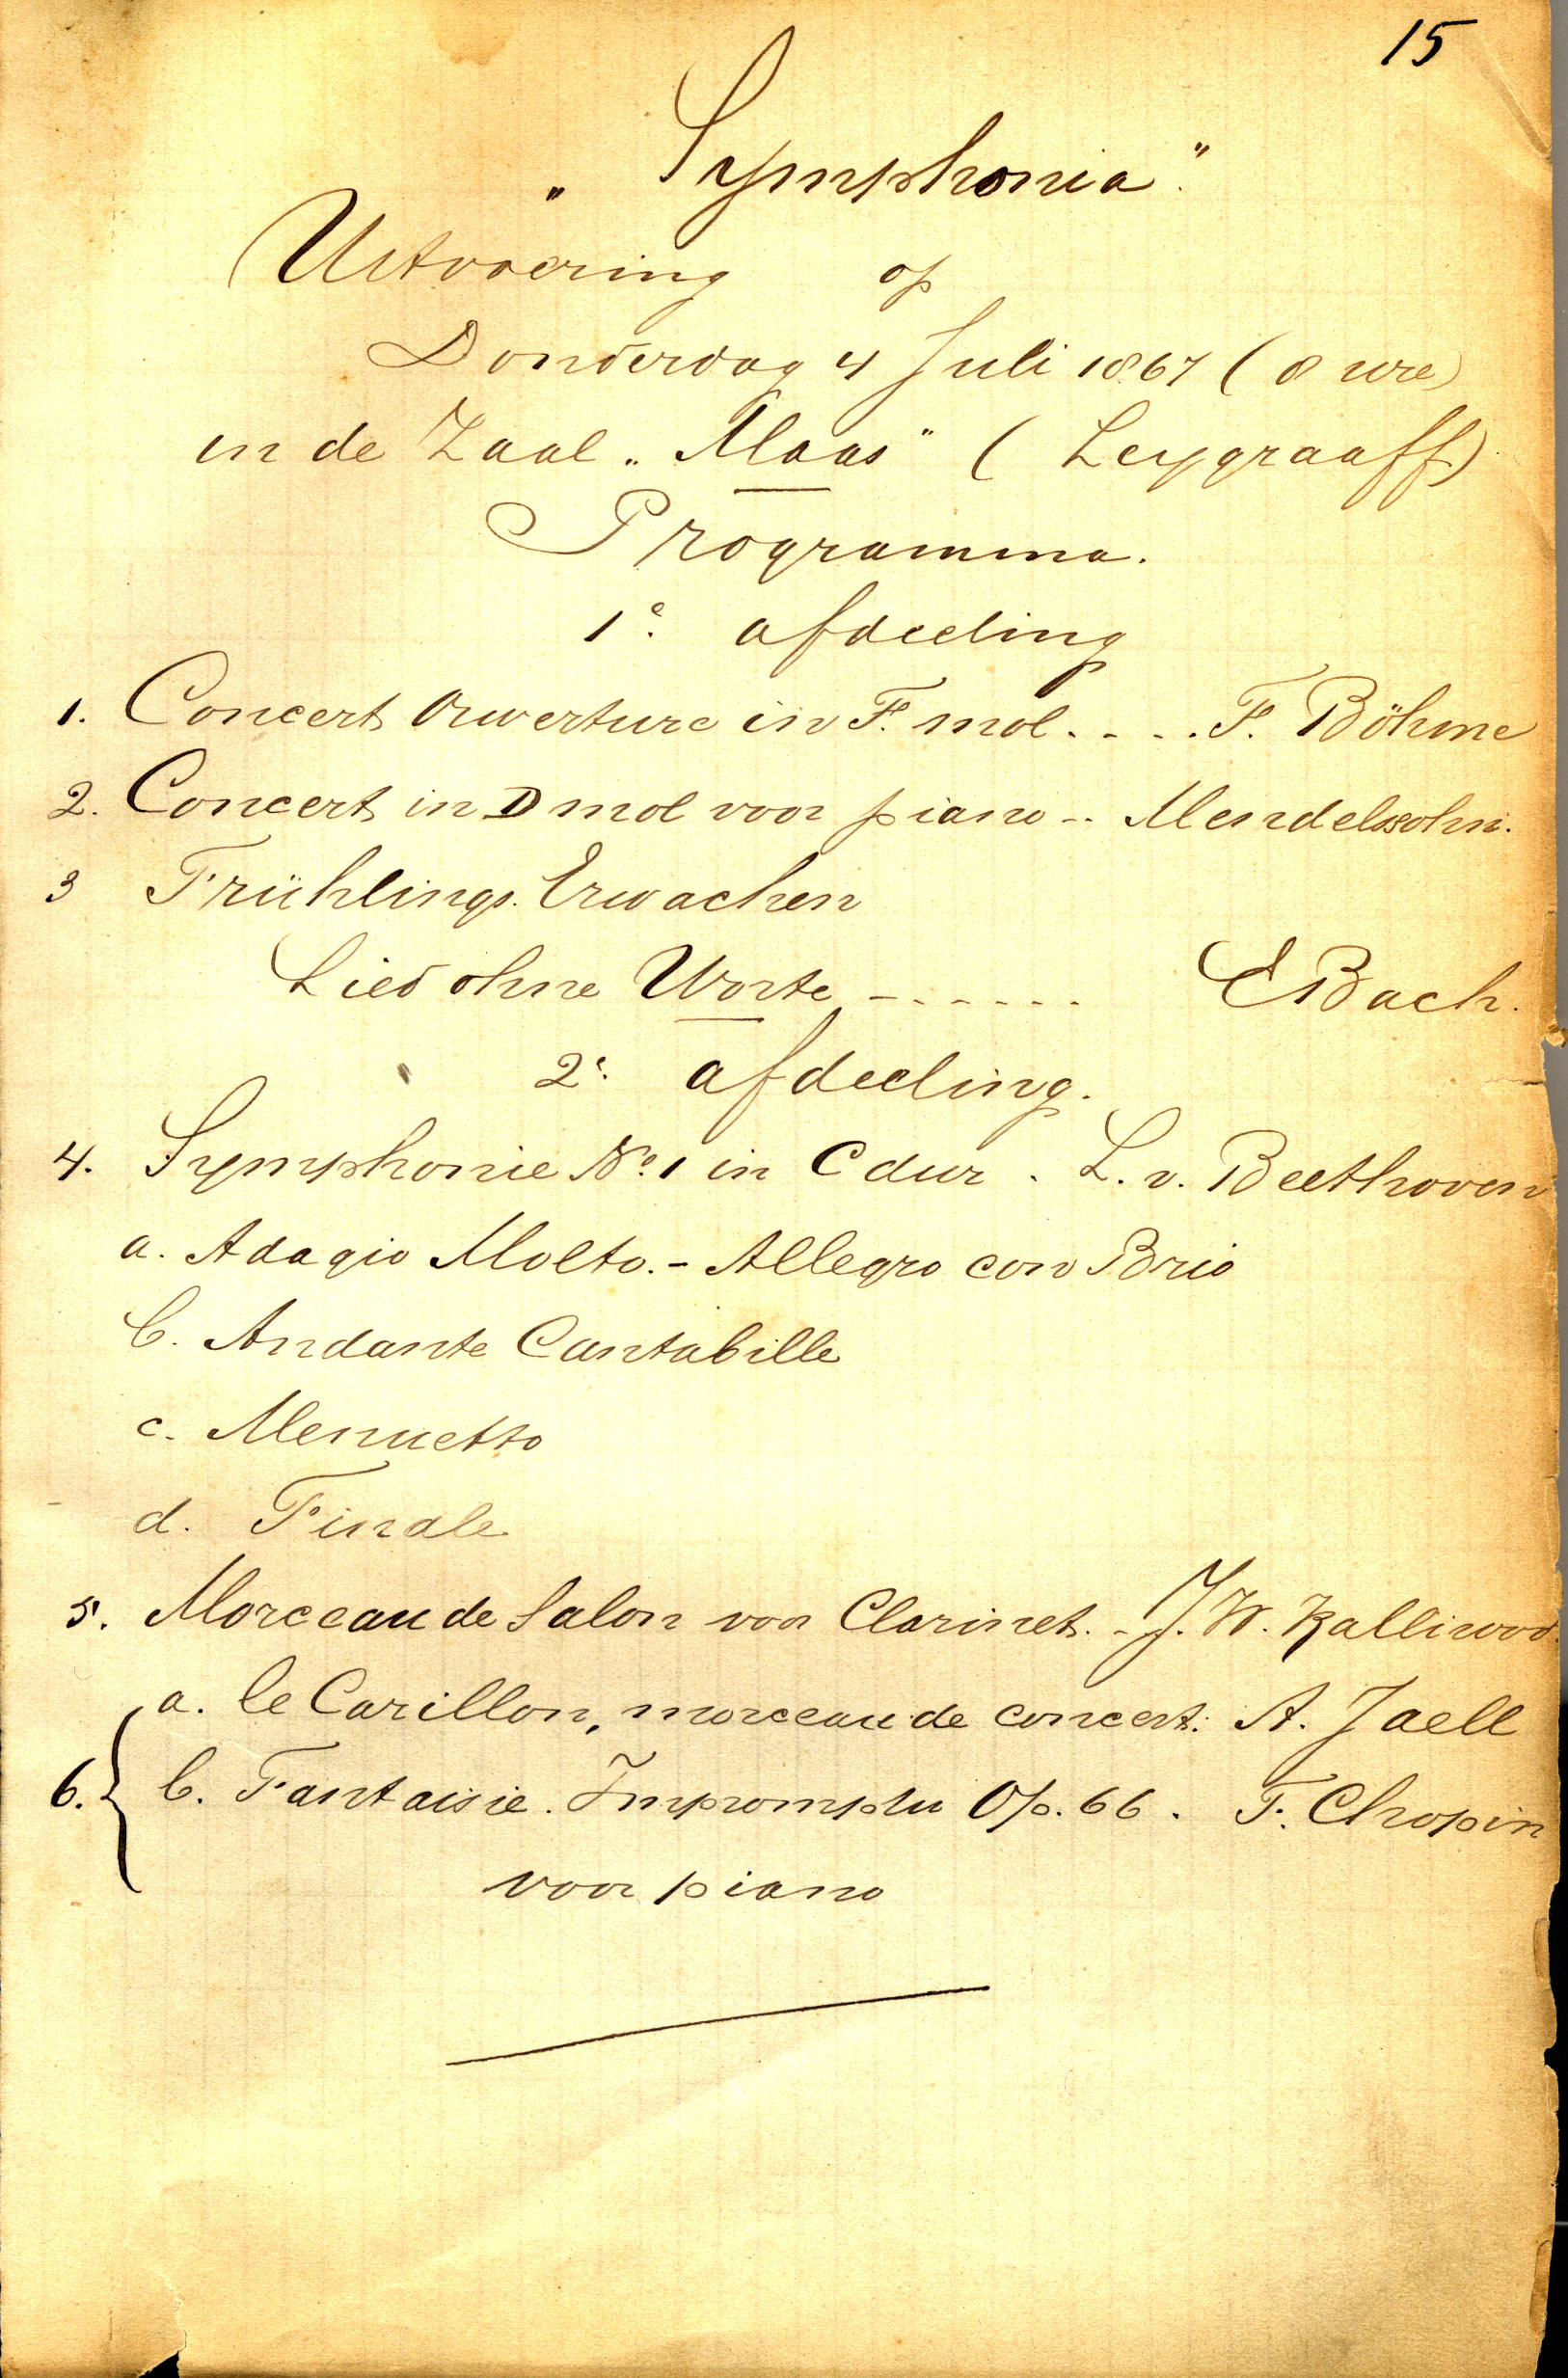 15
„Symphonia".
Uitvoering op
Donderdag 4 Juli 1867 (8 ure)
in de Zaal „Maas" (Leygraaff)
Programma.
1e. afdeeling
1. Concert Ouverture in F. mol. - - . . F. Böhme
2. Concert in D mol voor piano - . Mendelssohn.
3 Frühlings. Erwachen
Lied ohne Worte - - . - - - - E Bach.
2e. afdeeling.
4. Symphonie No. 1 in C dur . L. v. Beethoven
a. Adagio Molto. - Allegro con Brio
b. Andante Cantabille
c. Menuetto
d. Finale
5. Morceau de Salon voor Clarinet. - J. W. Kalliwod
6. { a. le Carillon, morceau de concert: A. Jaell
b. Fantaisie. Impromptu Op. 66 . F. Chopin
voor piano